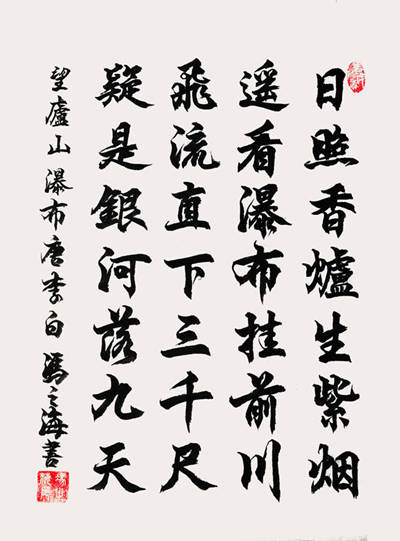 日照香爐生紫烟
遥看瀑布挂前川
飛流直下三千尺
疑是銀河落九天
望廬山瀑布唐李白馮之海書